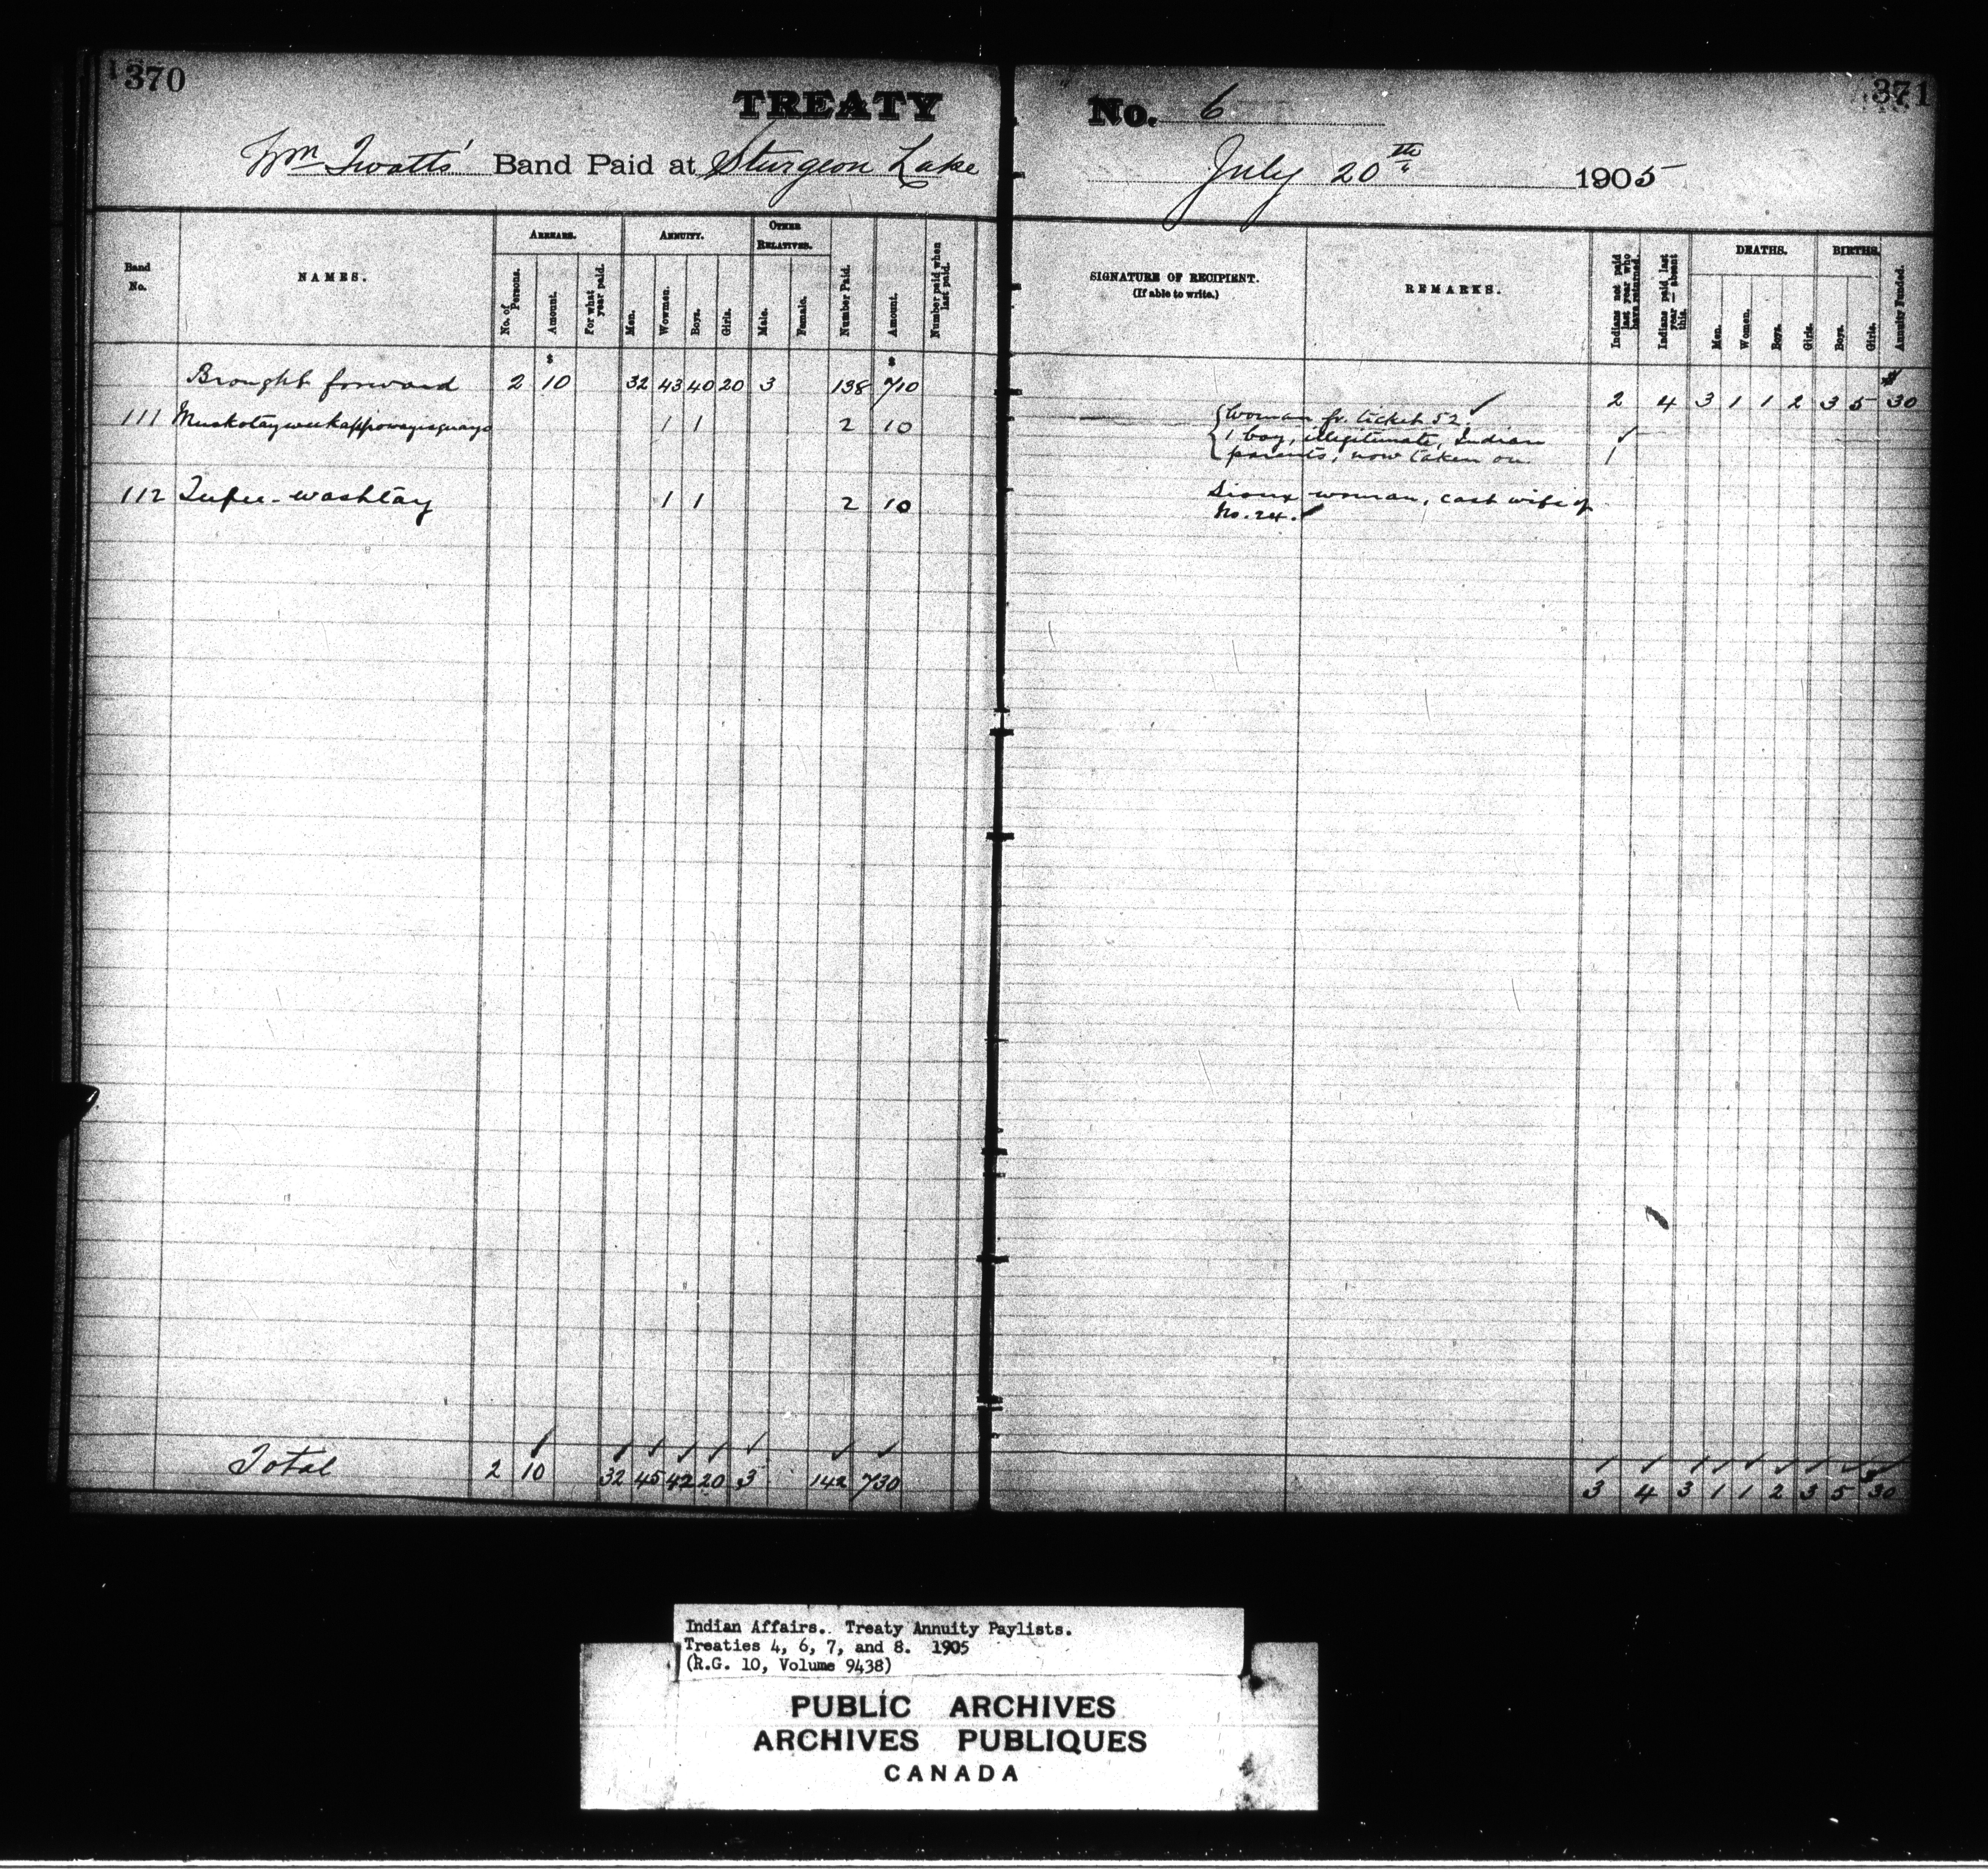 370
TREATY
Wm Twatts' Band Paid at Sturgeon Lake
Band No.
NAMES.
ARREARS.
No. of Persons.
Amount.
For what year paid.
ANNUITY.
Men.
Wowmen.
Boys.
Girls.
OTHER RELATIVES.
Male.
Female.
Number Paid.
Amount.
Number paid when last paid.
$ $
Brought forward 2 10 32 43 40 20 3 138 710
111 1 1 2 10
112 1 1 2 10
Total 2 10 32 45 42 20 3 142 730
371
No. 6
July 20th 1905
SIGNATURE OF RECIPIENT.
(If able to write.)
REMARKS.
Indians not paid last year who have returned.
Indians paid last year — absent this.
DEATHS.
Men.
Women.
Boys.
Girls.
BIRTHS.
Boys.
Girls.
Annuity Funded.
2 4 3 1 1 2 3 5 30
Woman fr. ticket 52.
1 boy, illegitimate, Indian
parents, now taken on. 1
Sioux woman, cast wife of
No. 24.
3 4 3 1 1 2 3 5 30
Indian Affairs. Treaty Annuity Paylists.
Treaties 4, 6, 7, and 8. 1905
(R.G. 10, Volume 9438)
PUBLIC ARCHIVES
ARCHIVES PUBLIQUES
CANADA